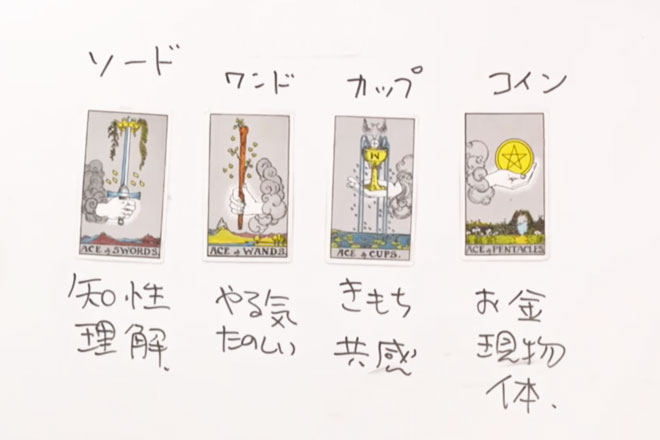 ソード
ワンド
カップ
コイン
ACE of SWORDS.
ACE of WANDS.
ACE of CUPS.
ACE of PENTACLES.
知性
理解、
やる気
たのしい
きもち
共感
お金
現物
体、